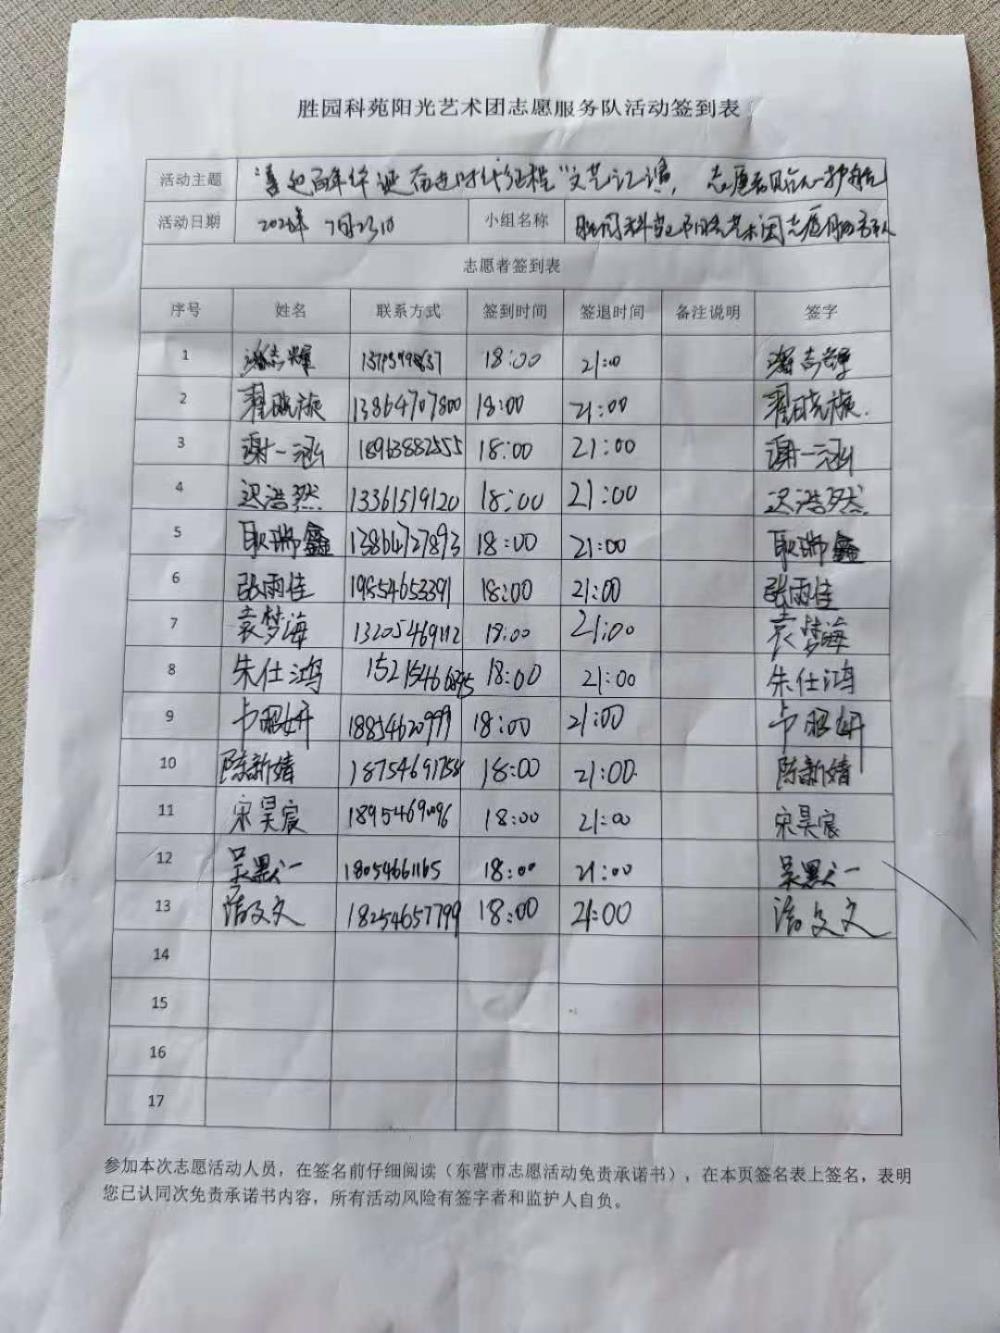 胜园科苑阳光艺术团志愿服务队活动签到表
活动主题 "喜迎百年华诞 奋进时代征程"文艺汇演, 志愿者
活动日期 7月23日 小组名称 胜园科苑阳光艺术团志愿服务队
志愿者签到表
序号 姓名 联系方式 签到时间 签退时间 备注说明 签字
1 18:00 21:00
2 翟晓旋 13864707800 18:00 21:00 翟晓旋.
3 谢一涵 18963882555 18:00 21:00 谢一涵
4 迟浩然 13361519120 18:00 21:00 迟浩然
5 耿瑞鑫 13864727893 18:00 21:00 耿瑞鑫
6 张雨佳 19854653391 18:00 21:00 张雨佳
7 袁梦海 13205469112 18:00 21:00 袁梦海
8 朱仕鸿 18:00 21:00 朱仕鸿
9 18854620999 18:00 21:00
10 陈新婧 18754691758 18:00 21:00 陈新婧
11 宋昊宸 18954690096 18:00 21:00 宋昊宸
12 吴默一 18054661165 18:00 21:00 吴默一
13 18254657799 18:00 21:00
14
15
16
17
参加本次志愿活动人员，在签名前仔细阅读（东营市志愿活动免责承诺书），在本页签名表上签名，表明
您已认同次免责承诺书内容，所有活动风险有签字者和监护人自负。